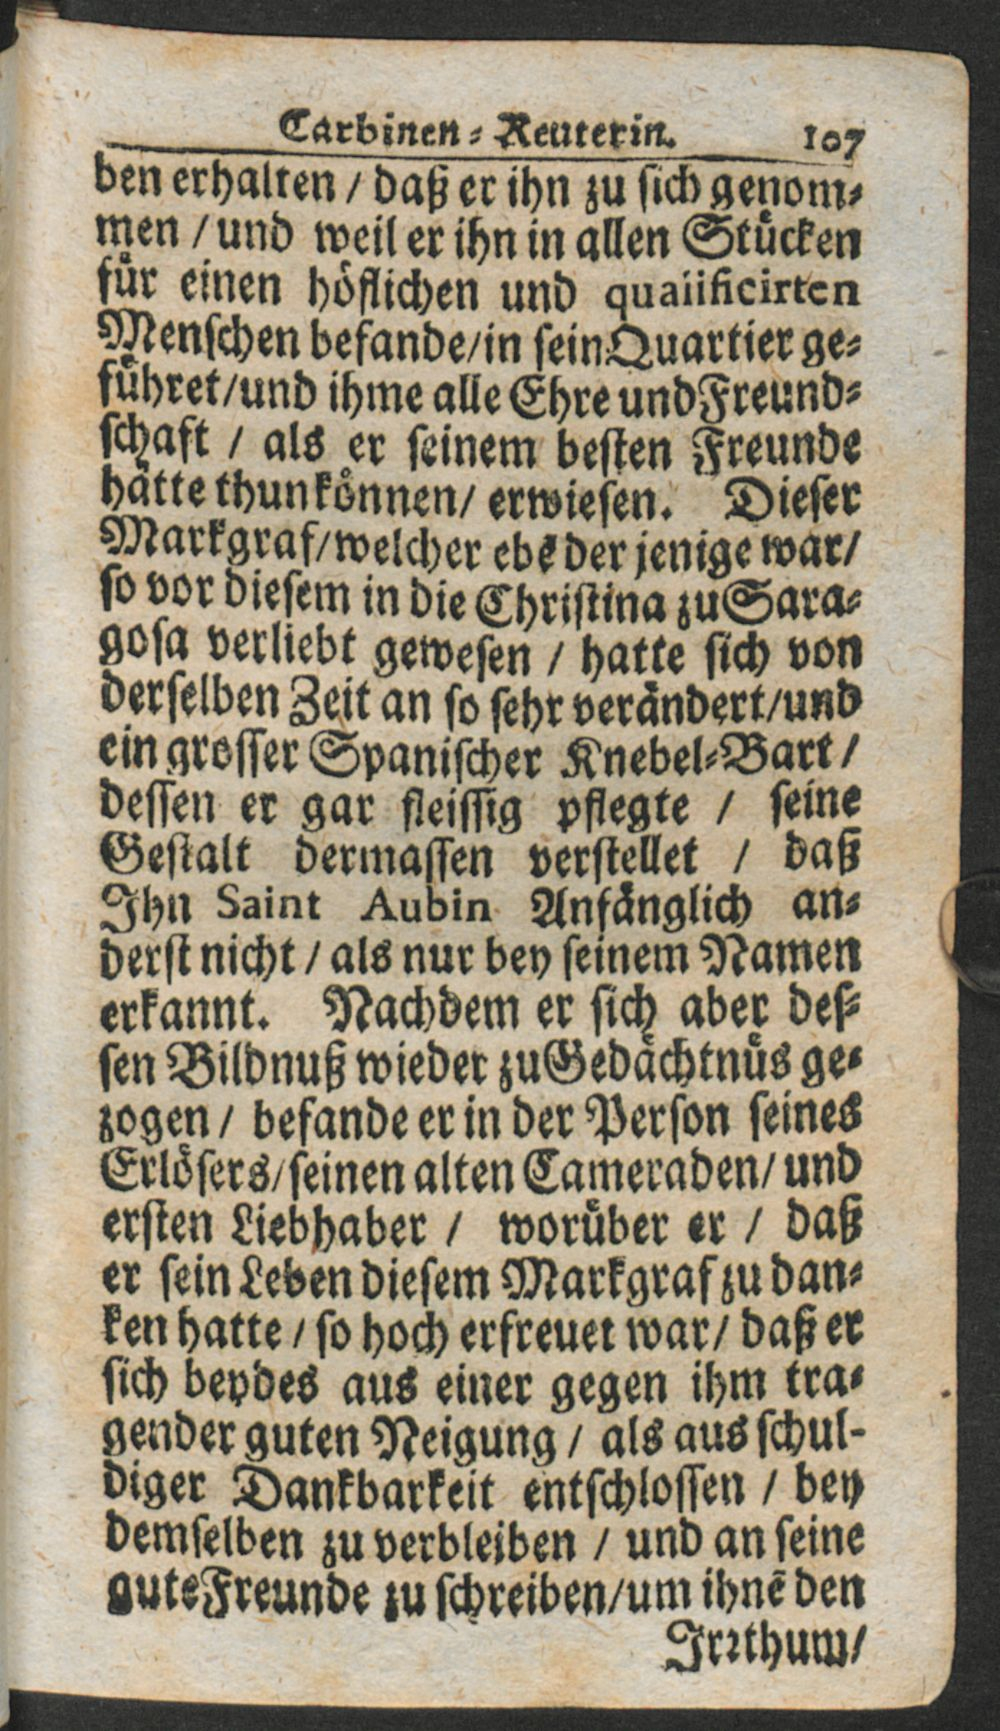 Carbinen-Reuterin. 107
ben erhalten / daß er ihn zu sich genom-
men / und weil er ihn in allen Stücken
für einen höflichen und qualificirten
Menschen befande/in sein Quartier ge-
führet/und ihme alle Ehre und Freund-
schaft / als er seinem besten Freunde
hätte thun können/ erwiesen. Dieser
Markgraf/welcher ebē der jenige war/
so vor diesem in die Christina zu Sara-
gosa verliebt gewesen / hatte sich von
derselben Zeit an so sehr verändert/und
ein grosser Spanischer Knebel-Bart /
dessen er gar fleissig pflegte / seine
Gestalt dermassen verstellet / daß
Ihn Saint Aubin Anfänglich an-
derst nicht / als nur bey seinem Namen
erkannt. Nachdem er sich aber des-
sen Bildnuß wieder zu Gedächtnüs ge-
zogen / befande er in der Person seines
Erlösers/seinen alten Cameraden/ und
ersten Liebhaber / worüber er / daß
er sein Leben diesem Markgraf zu dan-
ken hatte / so hoch erfreuet war/ daß er
sich beydes aus einer gegen ihm tra-
gender guten Neigung / als aus schul-
diger Dankbarkeit entschlossen / bey
demselben zu verbleiben / und an seine
gute Freunde zu schreiben/um ihnē den
Irrthum/